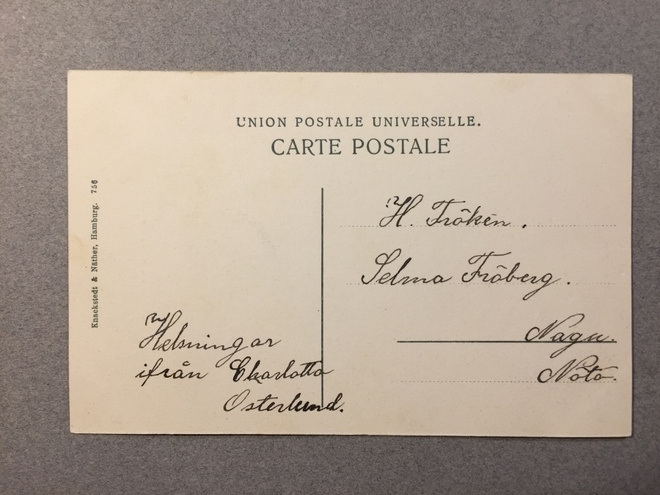 UNION POSTALE UNIVERSELLE.
CARTE POSTALE
Knackstedt & Näther, Hamburg. 756
H. Fröken.
Selma Fröberg.
Nagu.
Nötö.
Helsningar
ifrån Charlotta
Österlund.